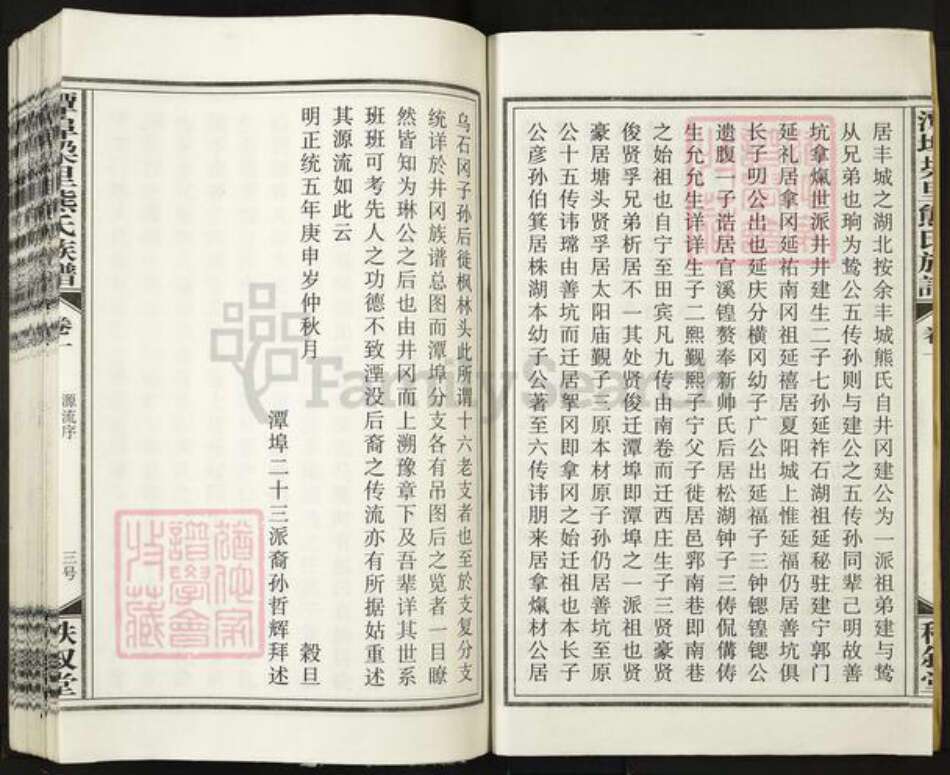 居丰城之湖北按余丰城熊氏自井冈建公为一派祖弟建与鸷
从兄弟也珦为鸷公五传孙则与建公之五传孙同辈己明故善
坑拿爊世派井井建生二子七孙延祚石湖祖延秘驻建宁郭门
延礼居拿冈延祐南冈祖延禧居夏阳城上惟延福仍居善坑俱
长子叨公出也延庆分横冈幼子广公出延福子三钟锶锽锶公
遗腹一子诰居官溪锽赘奉新帅氏后居松湖钟子三俦侃傋俦
生允允生详详生子二熙觐熙子宁父子徙居邑郭南巷即南巷
之始祖也自宁至田宾凡九传由南卷而迁西庄生子三贤豪贤
俊贤孚兄弟析居不一其处贤俊迁潭埠即潭埠之一派祖也贤
豪居塘头贤孚居太阳庙觐子三原本材原子孙仍居善坑至原
公十五传讳瑺由善坑而迁居挐冈即拿冈之始迁祖也本长子
公彦孙伯箕居株湖本幼子公著至六传讳朋来居拿爊材公居
乌石冈子孙后徙枫林头此所谓十六老支者也至於支复分支
统详於井冈族谱总图而潭埠分支各有吊图后之览者一目瞭
然皆知为琳公之后也由井冈而上溯豫章下及吾辈详其世系
班班可考先人之功德不致湮没后裔之传流亦有所据姑重述
其源流如此云
明正统五年庚申岁仲秋月 穀旦
潭埠二十三派裔孙哲辉拜述
潭埠梁里熊氏族谱 卷一 源流序 三号 秩叙堂
FamilySearch